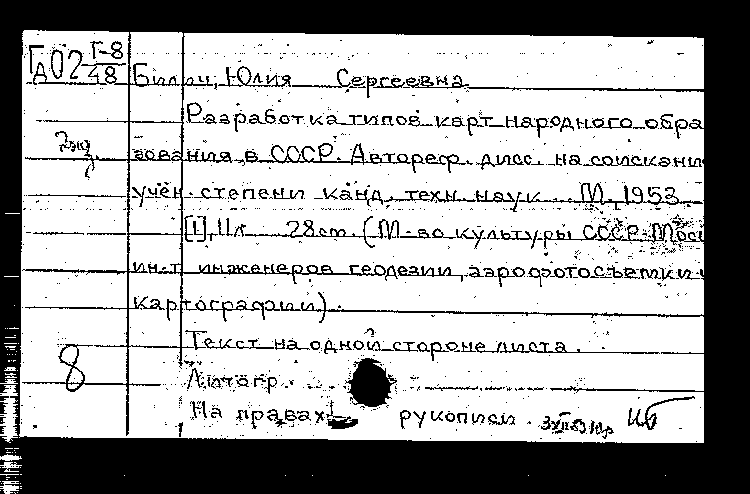 Гд02 Г-8
48
Билич, Юлия Сергеевна
Разработка типов карт народного обра
зования в СССР. Автореф. дисс. на соискани
учён. степени канд. техн. наук. М., 1953.
[1], 11л 28см. (М-во культуры СССР. Моск
ин-т инженеров геодезии, аэрофотосъемки и
картографии).
Текст на одной стороне листа.
8
Литогр.
На правах рукописи.